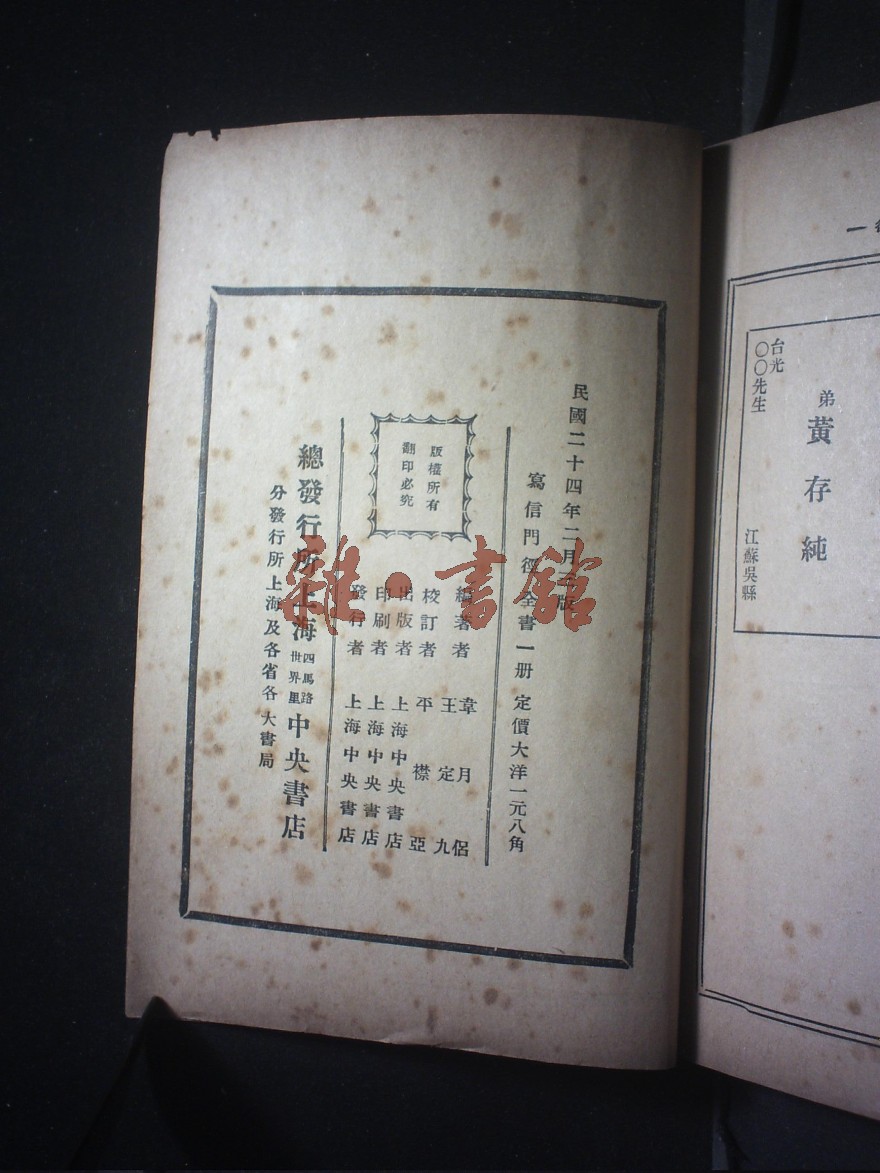 弟 黃存純
江蘇吳縣
台光
〇〇先生
民國二十四年二月 版
寫信門徑全書一册 定價大洋一元八角
版權所有
翻印必究
編著者 韋月侶
校訂者 王定九
平襟亞
出版者 上海中央書店
印刷者 上海中央書店
發行者 上海中央書店
總發行所上海 四馬路 世界里 中央書店
分發行所上海及各省各大書局
雜·書館